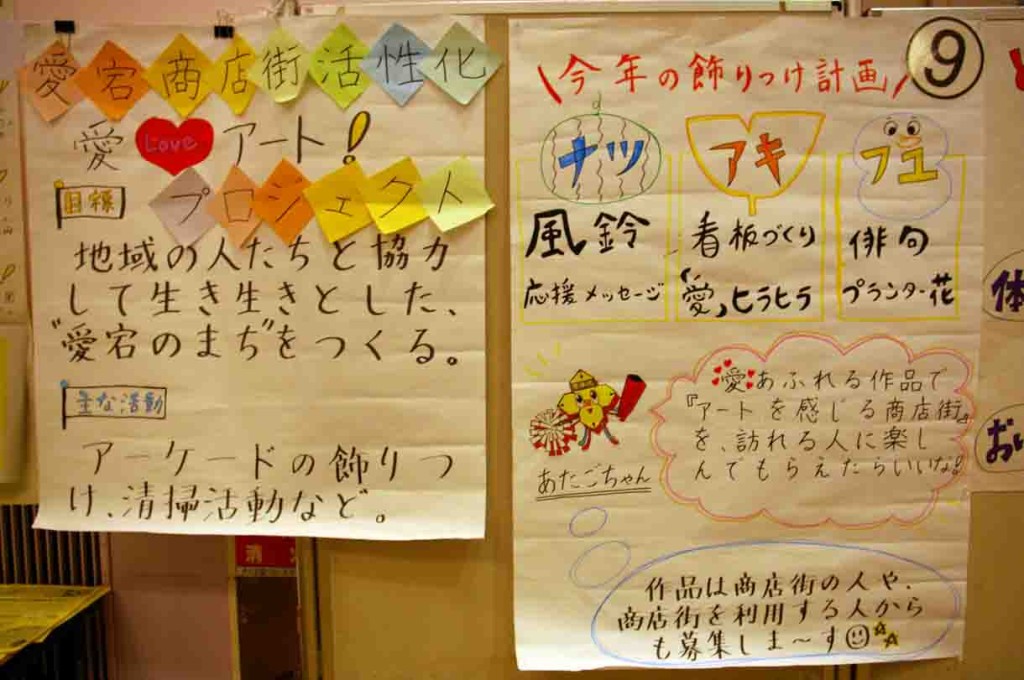 愛宕商店街活性化
愛 Love アート!
プロジェクト
目標
地域の人たちと協力
して生き生きとした、
"愛宕のまち"をつくる。
主な活動
アーケードの飾りつ
け、清掃活動など。
消
\今年の飾りつけ計画/
9
ナツ
風鈴
応援メッセージ
アキ
看板づくり
「愛」ヒラヒラ
フユ
俳句
プランター花
あたごちゃん
愛あふれる作品で
『アートを感じる商店街』
を、訪れる人に楽し
んでもらえたらいいな!
作品は商店街の人や、
商店街を利用する人から
も募集しま〜す
体
おい